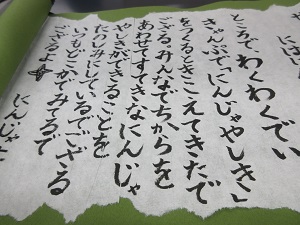 ところで、わくわくでい
きゃんぷで「にんじゃやしき」
をつくるときこえてきたで
ござる。みんなでちからを
あわせてすてきなにんじゃ
やしきができることを
たのしみにしているでござる
いつもどこかでみてるで
ござるよ
にんじゃ